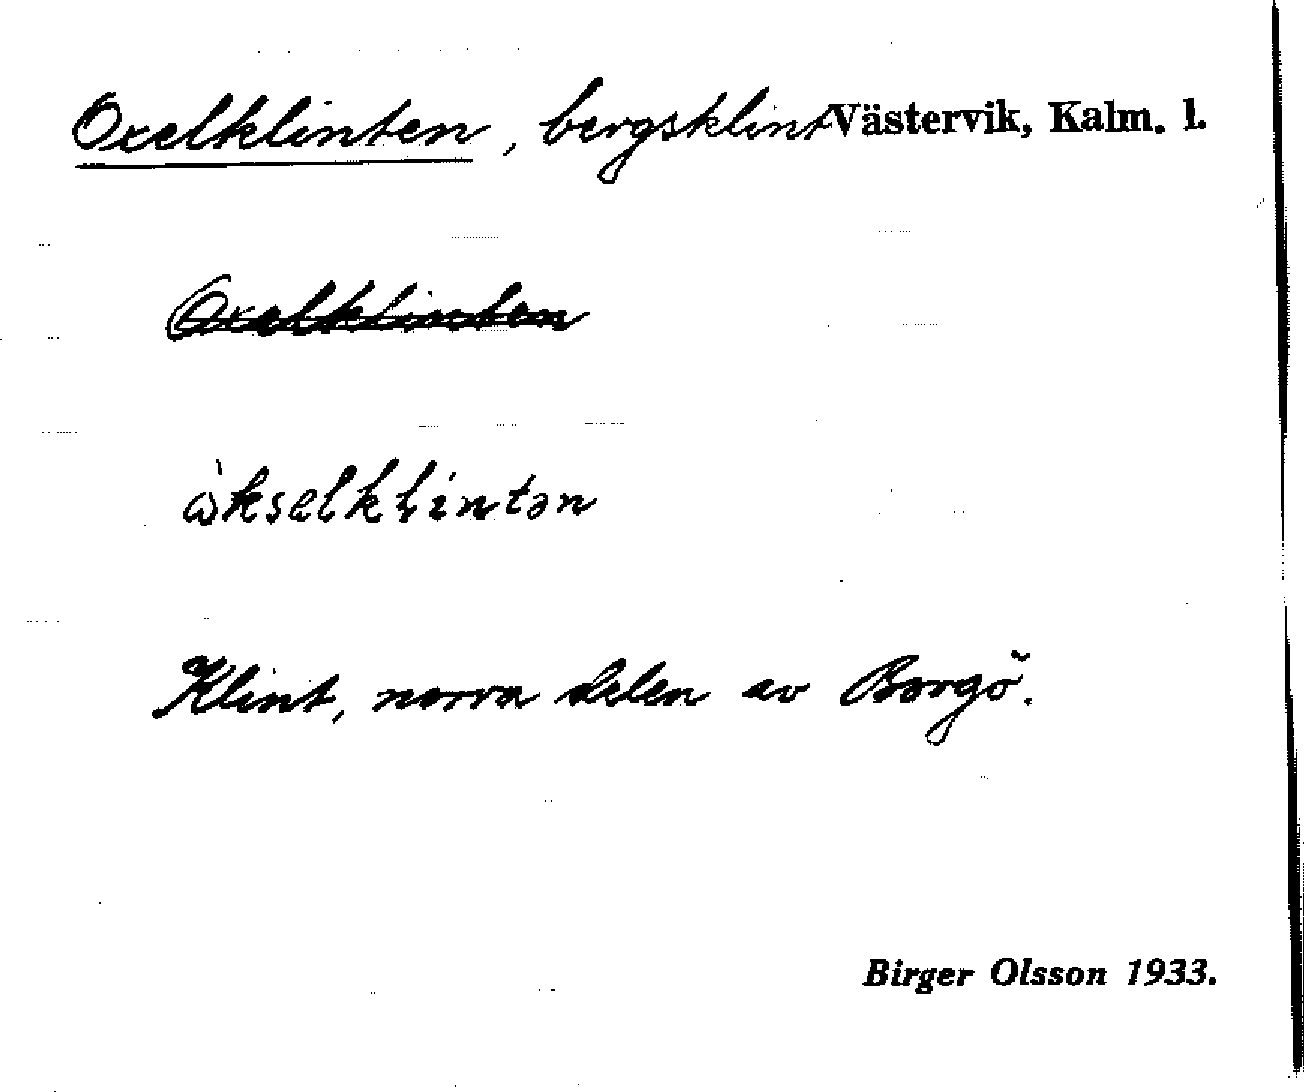 Oxelklinten, bergsklint Västervik, Kalm. l.
Oxelklinten
ò̀kselklintən
Klint, norra delen av Borgö.
Birger Olsson 1933.